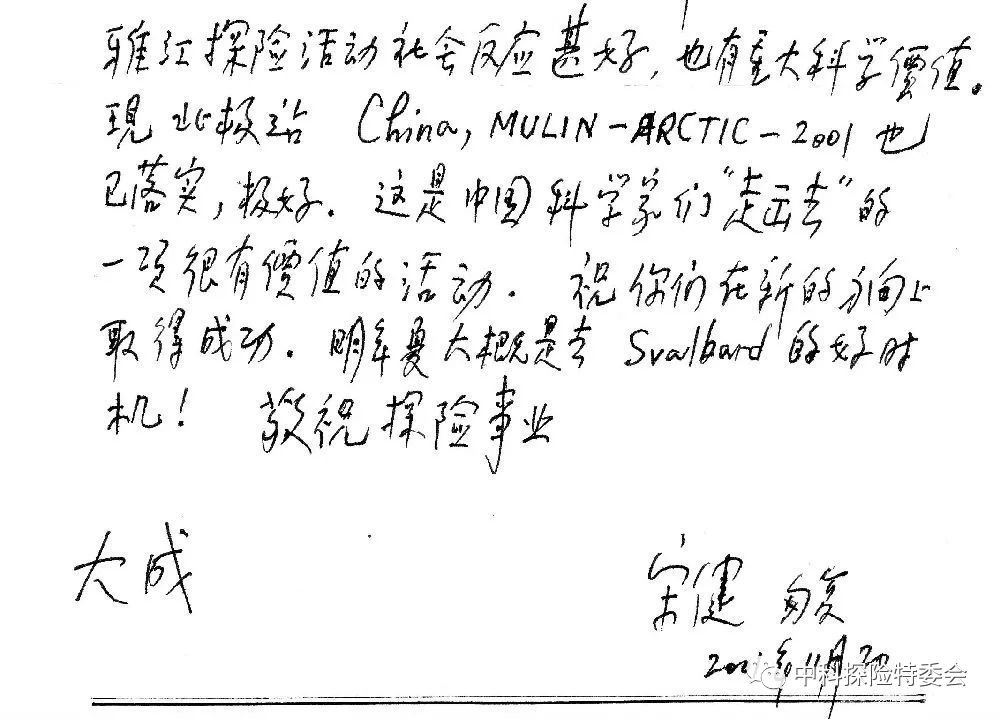 雅江探险活动社会反应甚好，也有重大科学價值。
現北极站 China, MULIN-ARCTIC-2001 也
已落实，极好．这是中国科学家们“走出去”的
一项很有價值的活动．祝你们在新的方向上
取得成功．明年夏大概是去 Svalbard 的好时
机！ 敬祝探险事业
大成
宋健 敬复
2001年11月
中科探险特委会